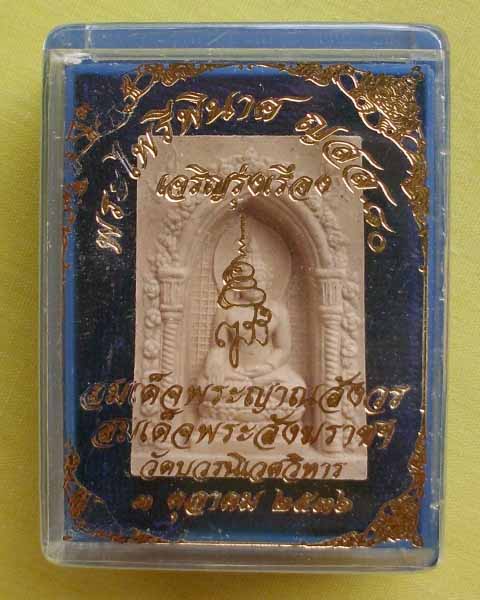 พระไพรีพินาศ ญสส ๘๐
เจริญรุ่งเรือง
สมเด็จพระญาณสังวร
สมเด็จพระสังฆราชฯ
วัดบวรนิเวศวิหาร
๓ ตุลาคม ๒๕๓๖